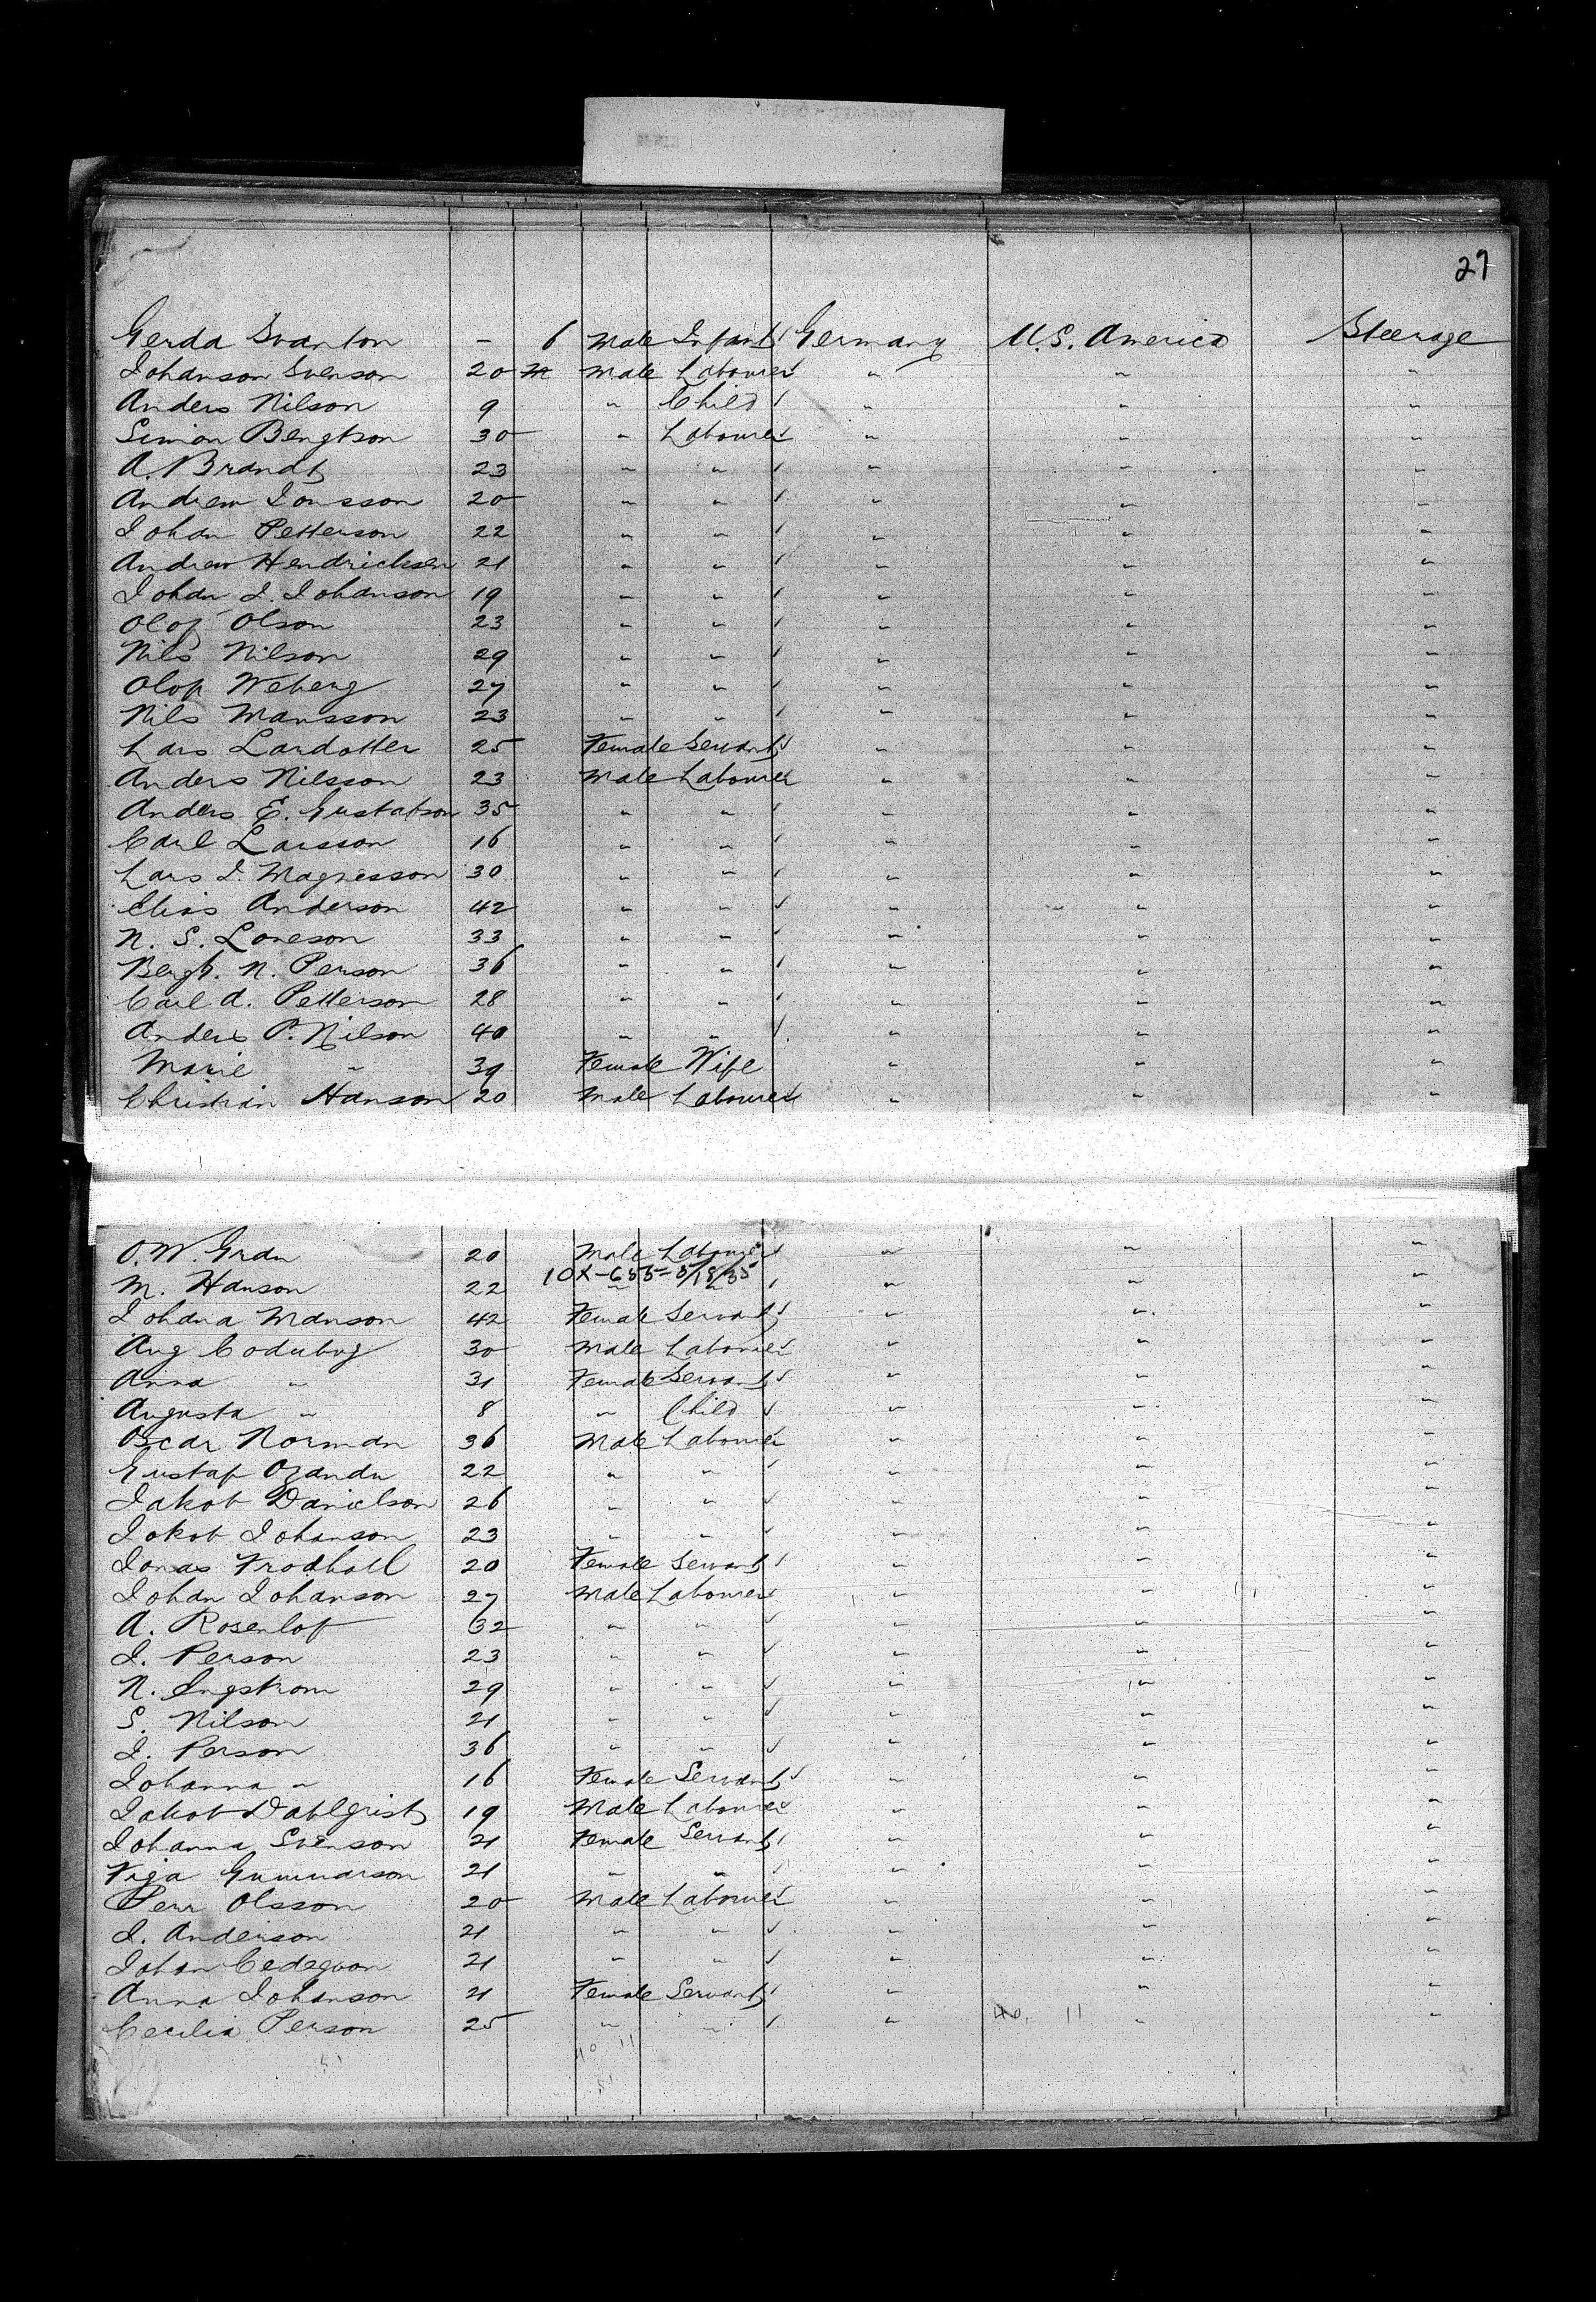 27
Gerda Svanton - 6 Male Infant Germany U.S. America Steerage
Johanson Svenson 20 Male Labourer " " "
Anders Nilson 9 " Child " " "
Simon Bengtson 30 " Labourer " " "
A. Brandt 23 " " " " "
Andrew Jonsson 20 " " " "
Johan Petterson 22 " " " " "
Andrew Hendricksen 21 " " " " "
Johan J. Johanson 19 " " " " "
Olof Olson 23 " " " " "
Nils Nilson 29 " " " " "
Olof Weberg 27 " " " " "
Nils Mansson 23 " " " " "
Lars Lardotter 25 Female Servant " " "
Anders Nilsson 23 Male Labourer " " "
Anders E. Gustafson 35 " " " " "
Carl Larsson 16 " " " " "
Lars J. Magnesson 30 " " " " "
Elias Anderson 42 " " " " "
N. S. Loneson 33 " " " " "
Bengt. N. Person 36 " " " " "
Carl A. Petterson 28 " " " " "
Anders P. Nilson 40 " " " " "
Marie " 39 Female Wife " " "
Christian Hanson 20 Male Labourer " " "
O. W. Gran 20 Male Labourer " " "
10X-655-5/18/35
M. Hanson 22 " " " " "
Johana Manson 42 Female Servant " " "
Aug 30 Male Labourer " " "
Anna " 31 Female Servant " " "
Augusta " 8 " Child " " "
Oscar Norman 36 Male Labourer " " "
Gustaf 22 " " " " "
Jakob Danielson 26 " " " " "
Jokob Johanson 23 " " " " "
Jonas Frodholl 20 Female Servant " " "
Johan Johanson 27 Male Labourer " " "
A. Rosenlof 32 " " " " "
J. Person 23 " " " " "
N. Engstrom 29 " " " " "
S. Nilson 21 " " " " "
J. Person 36 " " " " "
Johanna " 16 Female Servant " " "
Jakob Dahlgrist 19 Male Labourer " " "
Johanna Svenson 21 Female Servant " " "
Gunnarson 21 " " " " "
Perr Olsson 20 Male Labourer " " "
J. Anderson 21 " " " " "
Johan 21 " " " " "
Anna Johanson 21 Female Servant " " "
Cecilia Person 25 " " " " "
40. 11
40 11